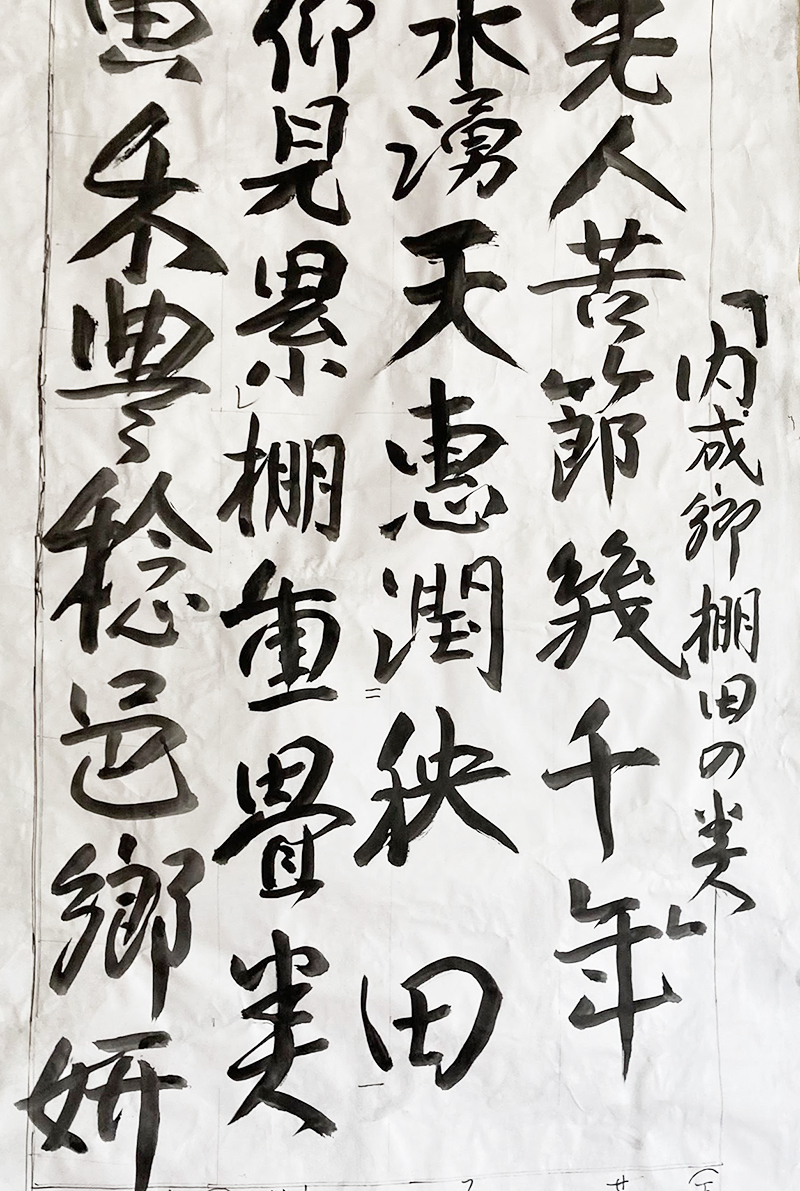 「内成郷棚田の美」
先人苦節幾千年
水湧天恵潤秧田
仰見累棚重畳美
黄禾豊稔邑郷妍